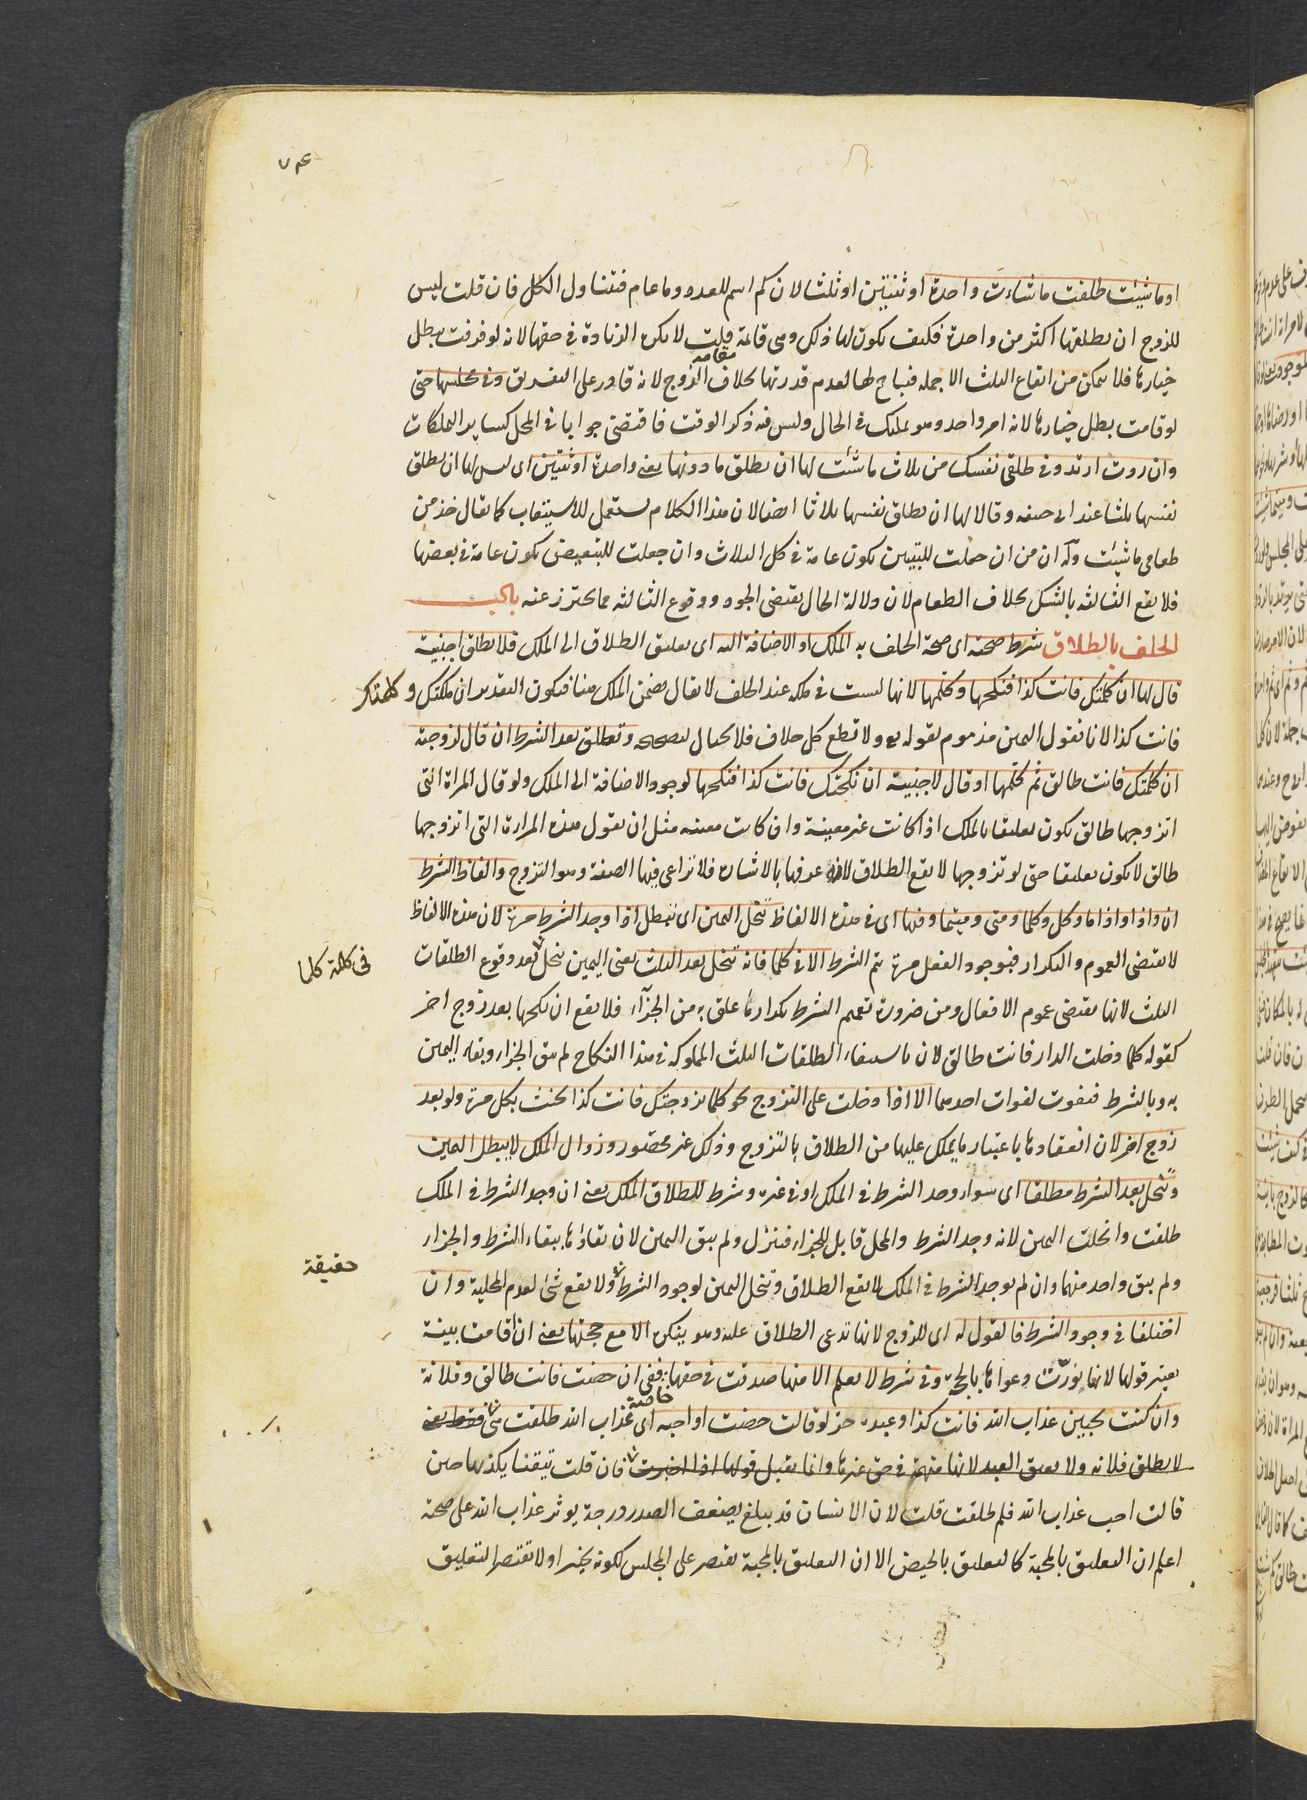 ٧٣٤
او ما شئت طلقت ما شاءت واحدة او ثنتين او ثلثا لان كم اسم للعدد وما عام فتتناول الكل فان قلت ليس
للزوج ان يطلقها اكثر من واحدة فكيف يكون لها ذلك وهى قائمة مقامه قلت لا يكره الزيادة فى حقها لانه لو فرقت يبطل
خيارها فلا يمكن من ايقاع الثلث الا جملة فيباح لها لعدم قدرتها بخلاف الزوج لانه قادر على التفريق وفى مجلسها حتى
لو قامت بطل خيارها لانه امر واحد وهو تمليك فى الحال وليس فيه ذكر الوقت فاقتضى جوابا فى المحل كساير التمليكات
وان ردت ارتد وفى طلقى نفسك من ثلاث ما شئت لها ان يطلق ما دونها يعنى واحدة او ثنتين اى ليس لها ان يطلق
نفسها ثلثا عند ابى حنيفه وقالا لها ان يطلق نفسها ثلاثا ايضا لان هذا الكلام يستعمل للاستيعاب كما يقال خذ من
طعامى ما شئت وله ان من ان حملت للتبيين يكون عامة فى كل الثلاث وان جعلت للتبعيض يكون عامة فى بعضها
فلا يقع الثالثه بالشك بخلاف الطعام لان دلالة الحال يقتضى الجود ووقوع الثالثه مما يحترز عنه باب
الحلف بالطلاق شرط صحته اى صحة الحلف به الملك او الاضافة اليه اى تعليق الطلاق الى الملك فلا يطلق اجنبية
قال لها ان كلمتك فانت كذا فنكحها وكلمها لانها ليست فى ملكه عند الحلف لا يقال يضمن الملك هنا فيكون التقدير ان ملكتك و كلمتك
فانت كذا لانا نقول اليمين مذموم لقوله تع ولا تطع كل حلاف فلا يحتال لتصحيحه وتطلق بعد الشرط ان قال لزوجته
ان كلمتك فانت طالق ثم كلمها او قال لاجنبية ان نكحتك فانت كذا فنكحها لوجود الاضافة الى الملك ولو قال المراة التى
اتزوجها طالق يكون تعليقا بالملك اذا كانت غير معينة وان كانت معينه مثل ان يقول هذه المراة التى اتزوجها
طالق لا يكون تعليقا حتى لو تزوجها لا يقع الطلاق لانه عرفها بالاشارة فلا تراعى فيها الصفة وهو التزوج والفاظ الشرط
ان واذا واذا ما وكل وكلما ومتى ومتيما وفيها اى فى هذه الالفاظ تنحل اليمين اى تبطل اذا وجد الشرط مرة لان هذه الالفاظ
لا يقتضى العموم والتكرار فبوجود الفعل مرة يتم الشرط الا فى كلما فانه تنحل بعد الثلث يعنى اليمين ينحل بعد وقوع الطلقات
فى كلمة كلما
الثلث لانها يقتضى عموم الافعال ومن ضرورة تعميم الشرط تكرار ما علق به من الجزاء فلا يقع ان نكحها بعد زوج اخر
كقوله كلما دخلت الدار فانت طالق لان باستيفاء الطلقات الثلث المملوكه فى هذا النكاح لم يبق الجزاء وبقاء اليمين
به وبالشرط فيفوت لفوات احدهما الا اذا دخلت على التزوج نحو كلما تزوجتك فانت كذا يحنث بكل مرة ولو بعد
زوج اخر لان انعقادها باعتبار ما يملك عليها من الطلاق بالتزوج وذلك غير محصور وزوال الملك لا يبطل اليمين
وتنحل بعد الشرط مطلقا اى سواء وجد الشرط فى الملك او فى غيره وشرط للطلاق الملك يعنى ان وجد الشرط فى الملك
طلقت وانحلت اليمين لانه وجد الشرط والمحل قابل للجزاء فينزل ولم يبق اليمين لان بقاءها ببقاء الشرط والجزاء
ولم يبق واحد منهما وان لم يوجد الشرط فى الملك لا يقع الطلاق وتنحل اليمين لوجود الشرط ولا يقع شئ لعدم المحلية وان
حقيقة
اختلفا فى وجود الشرط فالقول له اى للزوج لانها تدعى الطلاق عليه وهو ينكره الا مع حجتها يعنى ان اقامت بينة
يعتبر قولها لانها نورت دعواها بالحجة وفى شرط لا يعلم الا منها صدقت فى حقها خاصة ففى ان حضت فانت طالق وفلانة
وان كنت تحبين عذاب الله فانت كذا وعبده حر لو قالت حضت او احبه اى عذاب الله طلقت هى فقط يعنى
لا يطلق فلانه ولا يعتق العبد لانها متهمة فى حق غيرها وانما يقبل قولها اذا اخبرت فان قلت تيقنا بكذبها حين
قالت احب عذاب الله فلم طلقت قلت لان الانسان قد يبلغ بضعف الصدر درجة يوثر عذاب الله على صحة
اعلم ان التعليق بالمحبة كالتعليق بالحيض الا ان التعليق بالمحبة يقتصر على المجلس لكونه تخييرا ولا تقتصر التعليق